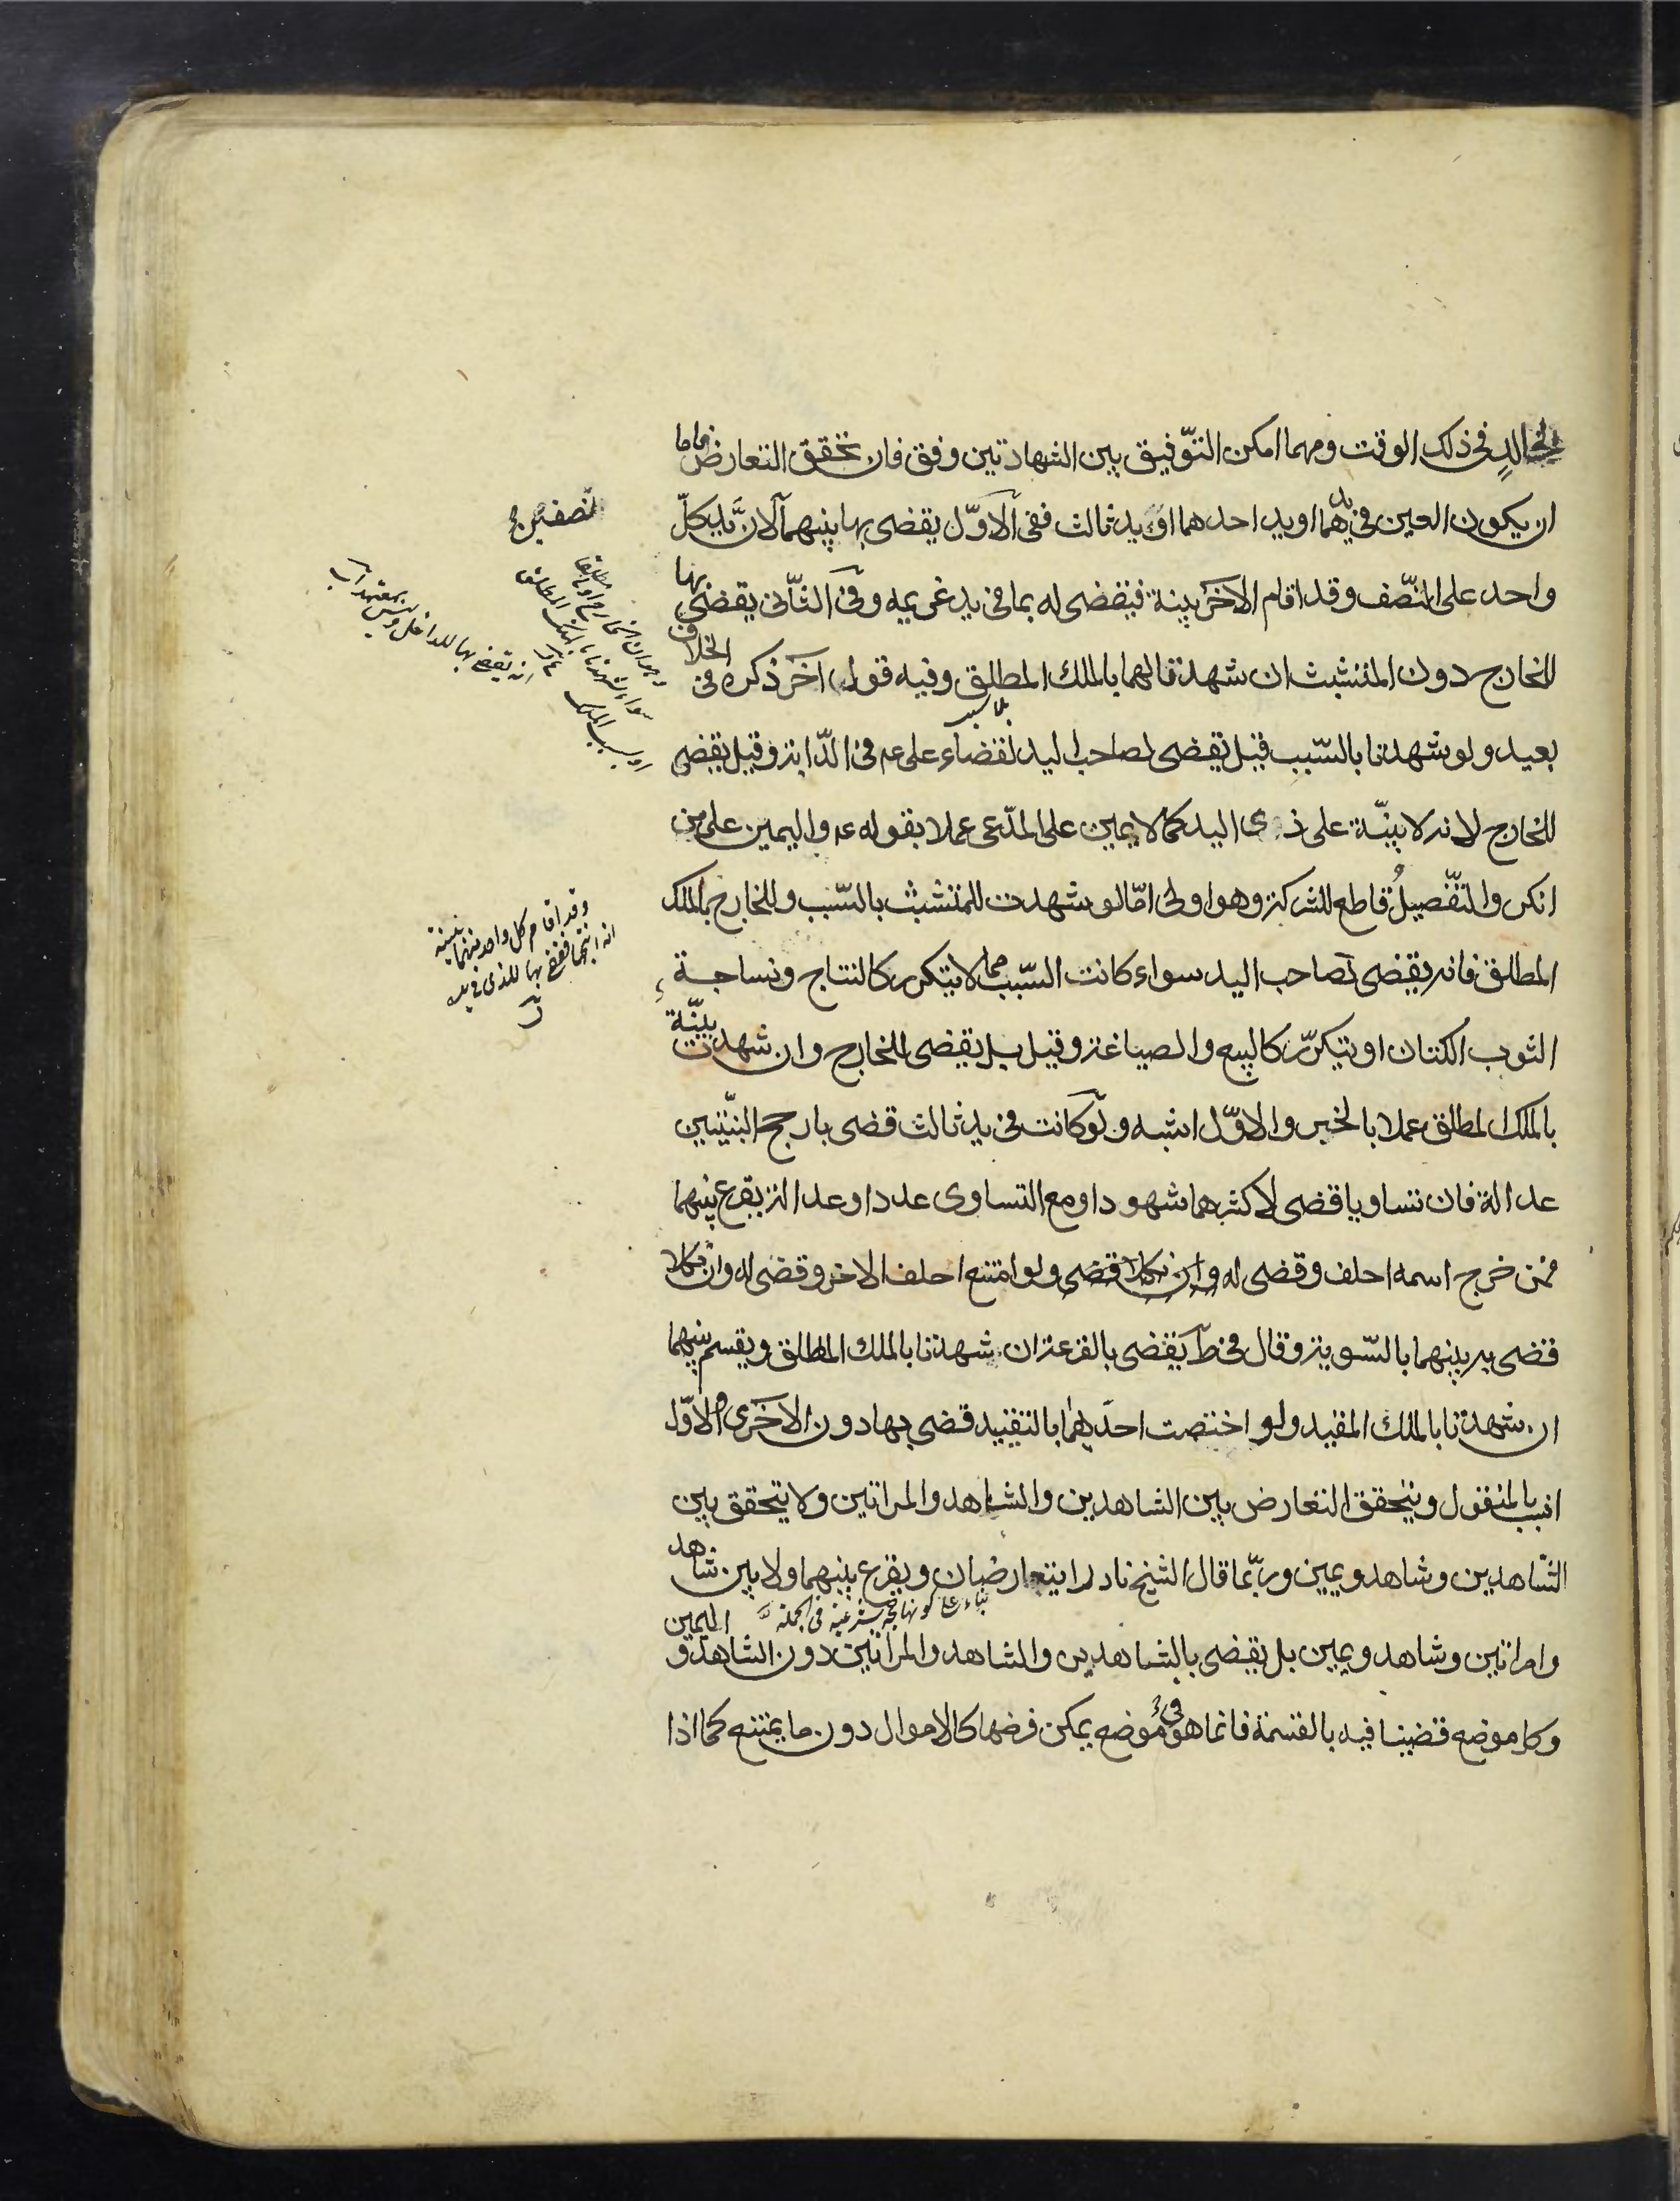 لخالد في ذلك الوقت ومهما امكن التوّفيق بين الشهادتين وفق فان تحقق التعارض فاما
ان يكون العين في يدهما او يد احدهما او يد ثالث ففي الاوّل يقضى بها بينهما لانّ يد كلّ
واحد على النّصف وقد اقام الاخر بينة فيقضى له بما في يد غريمه وفي الثّاني يقضى بها
للخارج دون المتشبث ان شهدتا لهما بالملك المطلق وفيه قول اخر ذكره في الخلاف
بعيد ولو شهدتا بالسّبب قيل يقضى لصاحب اليد لقضاء على عم في الدّابة وقيل يقضى
للخارج لانه لا بينّة على ذى اليد كما لا يمين على المدّعى عملا بقوله عم واليمين على من
انكر والتفّصيل قاطع للشركة وهو اولى امّا لو شهدت للمتشبث بالسّبب وللخارج بالملك
المطلق فانه يقضى لصاحب اليد سواء كانت السّبب مما لا يتكرر كالنتاج ونساجة
الثوب الكتان او يتكرّر كالبيع والصياغة وقيل بل يقضى للخارج وان شهدت بينّة
بالملك المطلق عملا بالخبر والاوّل اشبه ولو كانت في يد ثالث قضى بارجح البيّنتين
عدالة فان تساويا قضى لاكثرهما شهودا ومع التساوى عددا وعدالة يقرع بينهما
فمن خرج اسمه احلف وقضى له وان نكلا قضى ولو امتنع احلف الاخر وقضى له وان نكلا
قضى به بينهما بالسّوية وقال في ط يقضى بالقرعة ان شهدتا بالملك المطلق ويقسم بينهما
ان شهدتا بالملك المقيد ولو اختصت احديهما بالتقييد قضى بها دون الاخرى والاوّل
انسب بالمنقول ويتحقق التعارض بين الشاهدين والشاهد والمراتين ولا يتحقق بين
الشّاهدين وشاهد ويمين وربّما قال الشيخ نادرا يتعارضان ويقرع بينهما ولا بين شاهد
بناء على كونها حجة شرعية في الجملة
وامراتين وشاهد ويمين بل يقضى بالشاهدين والشاهد والمراتين دون الشاهد و اليمين
وكل موضع قضينا فيه بالقسمة فانما هو في موضع يمكن فرضها كالاموال دون ما يمتنع كما اذا
نصفين
انه يقضى بها للداخل
وقد اقام كل واحد منهما بينة
انه انتجها فقضى بها للذى في يده